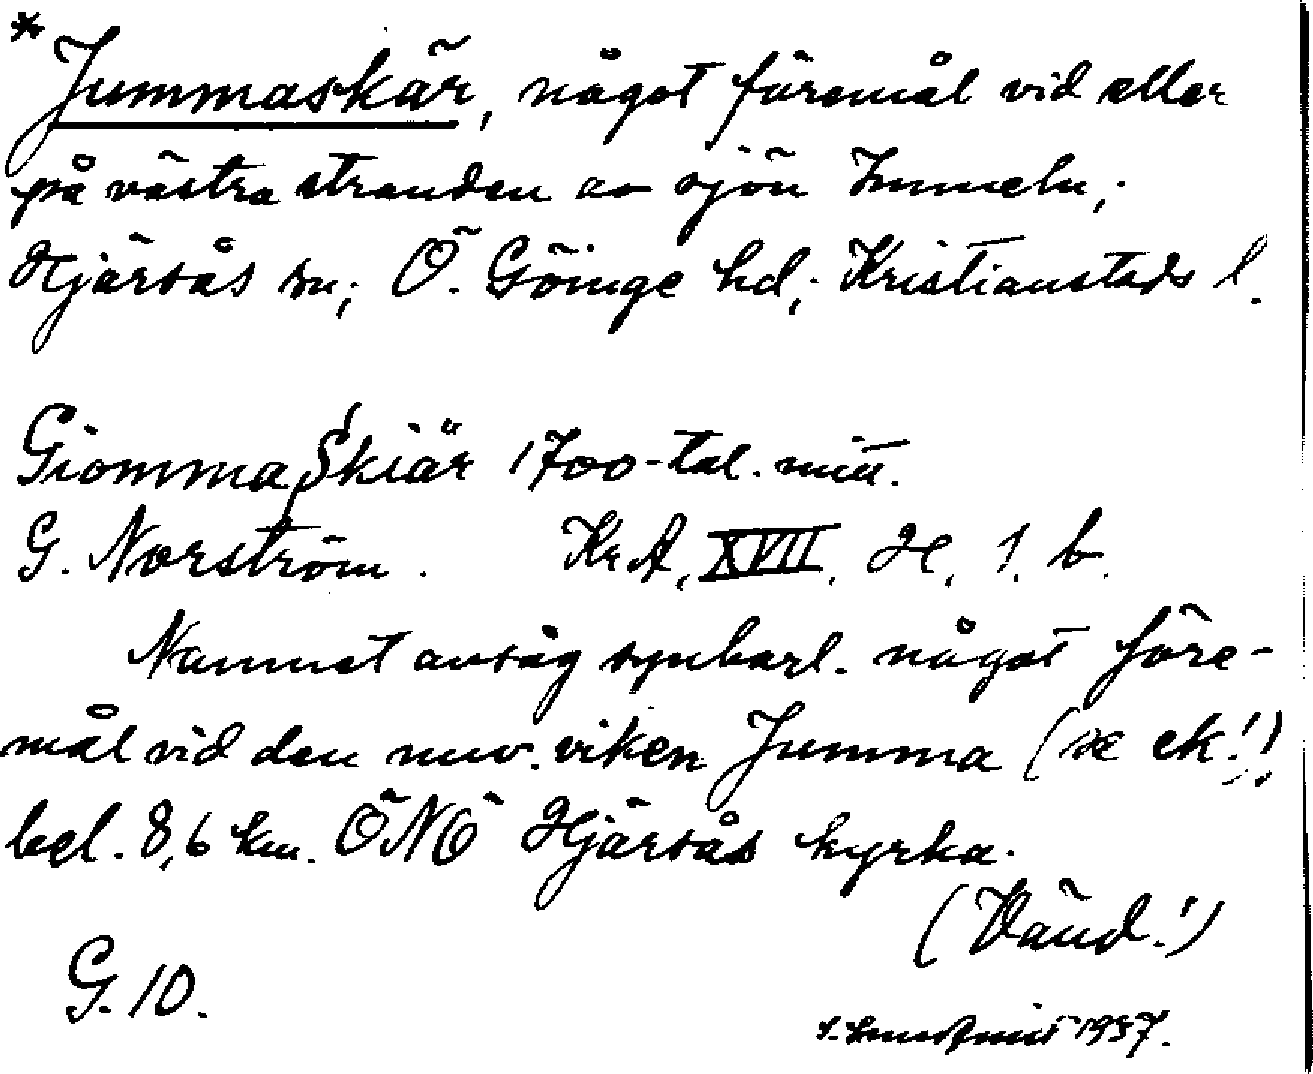 * Jummaskär, något föremål vid eller
på västra stranden av sjön Immeln;
Hjärsås sn; Ö. Göinge hd; Kristianstads l.
Giomma Skiär 1700-tal. mitt.
G. Norström. KrA, XVII, H, 1. b.
Namnet avsåg synbarl. något före-
mål vid den nuv. viken Jumma (se ek!),
bel. 8,6 km. ÖNÖ Hjärsås kyrka.
(Vänd!)
G. 10.
1937.